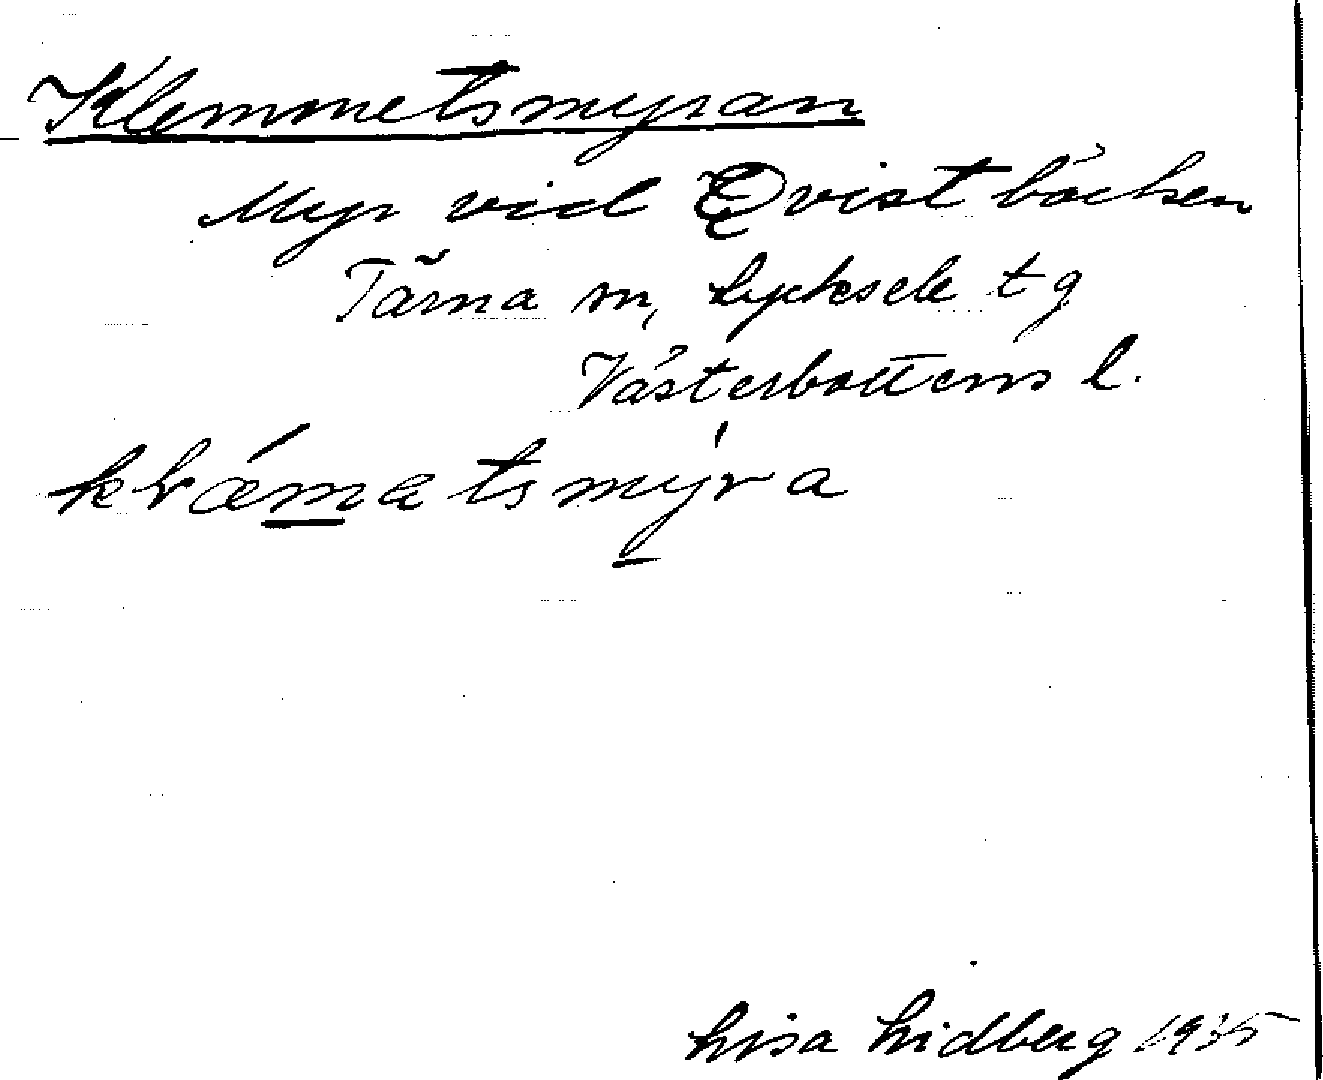 Klemmetsmyran
Myr vid Qvistbäcken
Tärna sn, Lycksele tg
Västerbottens l.
klǽmatsmýra
Lisa Lidberg 1935